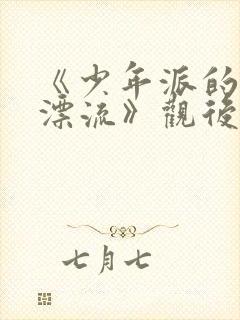 《少年派的
漂流》觀後
七月七